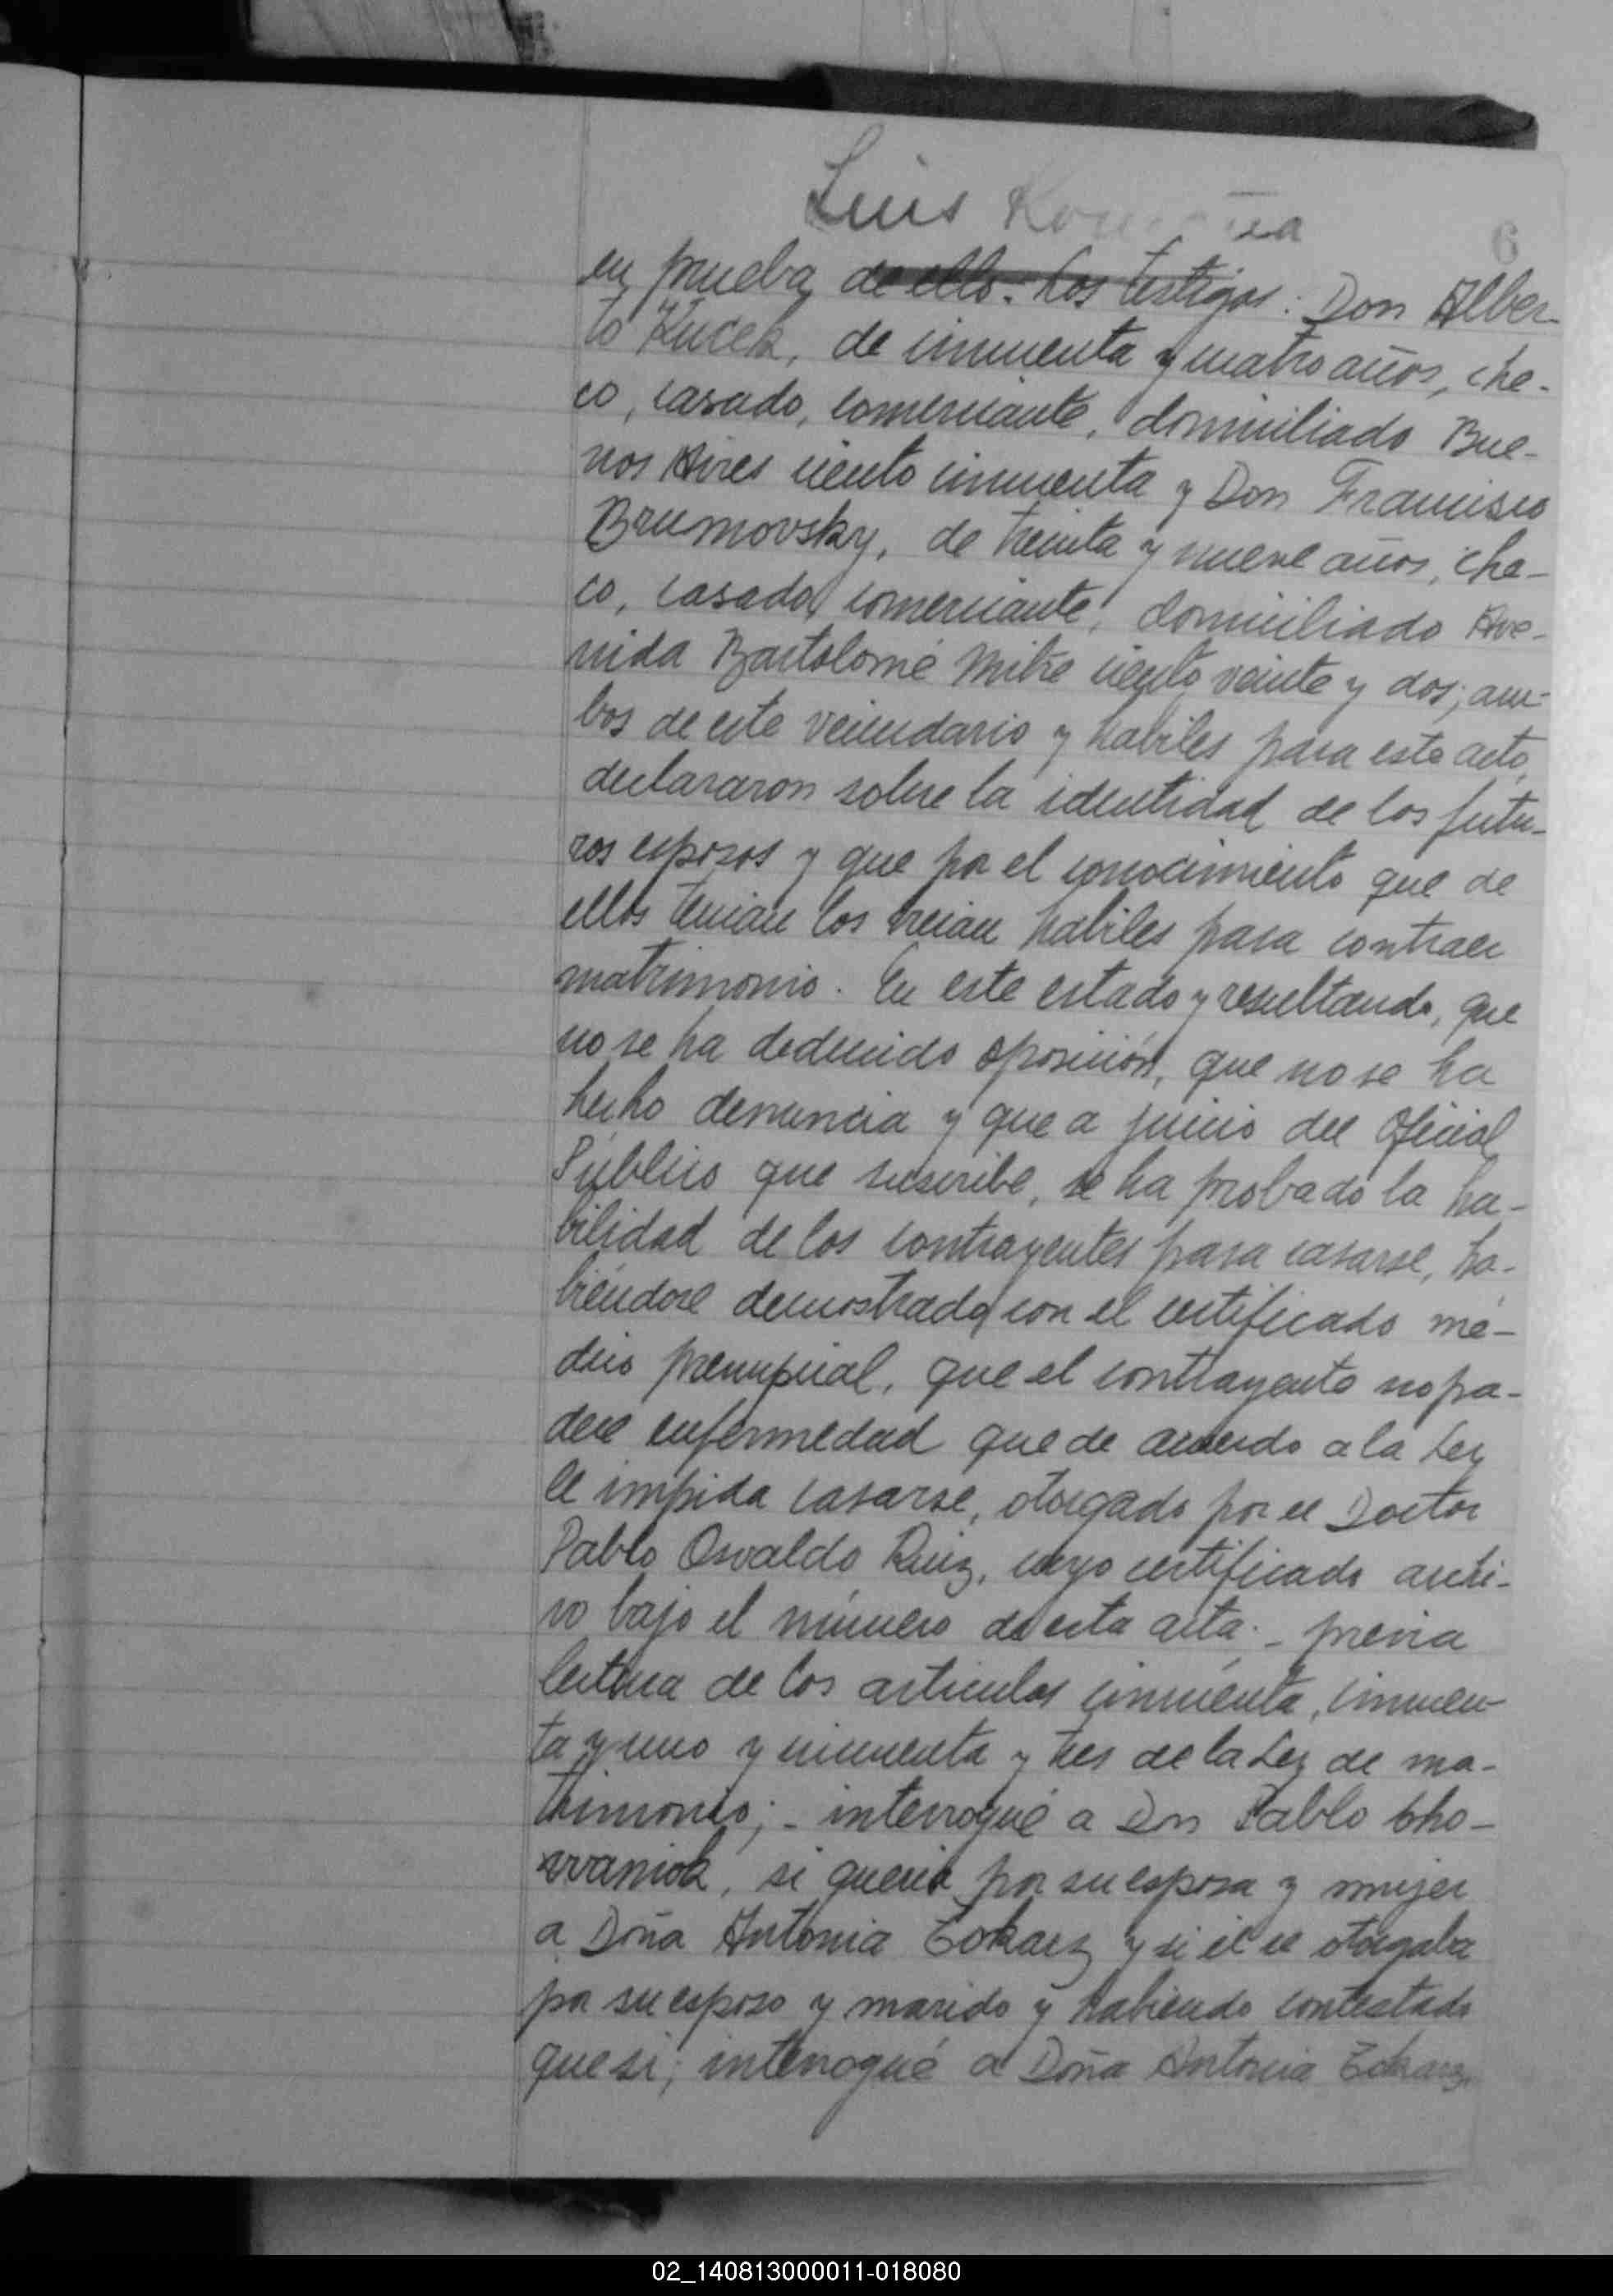 Luis
6
en prueba de ello. Los testigos: Don Alber-
to Kucek, de cincuenta y cuatro años, che-
co, casado, comerciante, domiciliado Bue-
nos Aires ciento cincuenta y Don Francisco
Brumovsky, de treinta y nueve años, che-
co, casado, comerciante, domiciliado Ave-
nida Bartolomé Mitre ciento veinte y dos; am-
bos de este vecindario y habiles para este acto,
declararon sobre la identidad de los futu-
ros esposos y que por el conocimiento que de
ellos tenian los creian habiles para contraer
matrimonio. En este estado y resultando, que
no se ha deducido oposición, que no se ha
hecho denuncia y que a juicio del Oficial
Público que suscribe, se ha probado la ha-
bilidad de los contrayentes para casarse, ha-
biéndose demostrado con el certificado mé-
dico prenupcial, que el contrayente no pa-
dece enfermedad que de acuerdo a la Ley
le impida casarse, otorgado por el Doctor
Pablo Osvaldo Ruiz, cuyo certificado archi-
vo bajo el número de esta acta; - previa
lectura de los articulos cincuenta, cincuen-
ta y uno y cincuenta y tres de la Ley de ma-
trimonio; - interrogué a Don Pablo Cho-
waniok, si queria por su esposa y mujer
a Doña Antonia Tokarz y si él se otorgaba
por su esposo y marido y habiendo contestado
que si; interrogué a Doña Antonia Tokarz,
02_140813000011-018080